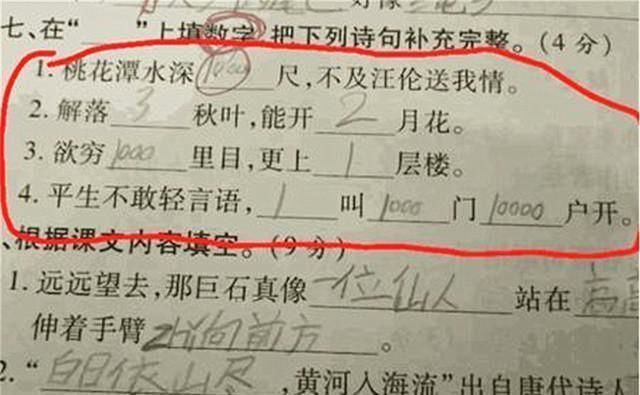 七、在“____”上填数字,把下列诗句补充完整。(4分)
1. 桃花潭水深1000尺,不及汪伦送我情。
2. 解落3秋叶,能开2月花。
3. 欲穷1000里目,更上1层楼。
4. 平生不敢轻言语,1叫1000门10000户开。
、根据课文内容填空。(9分)
1. 远远望去,那巨石真像一位仙人站在高高
伸着手臂指向前方。
2. “白日依山尽,黄河入海流”出自唐代诗人